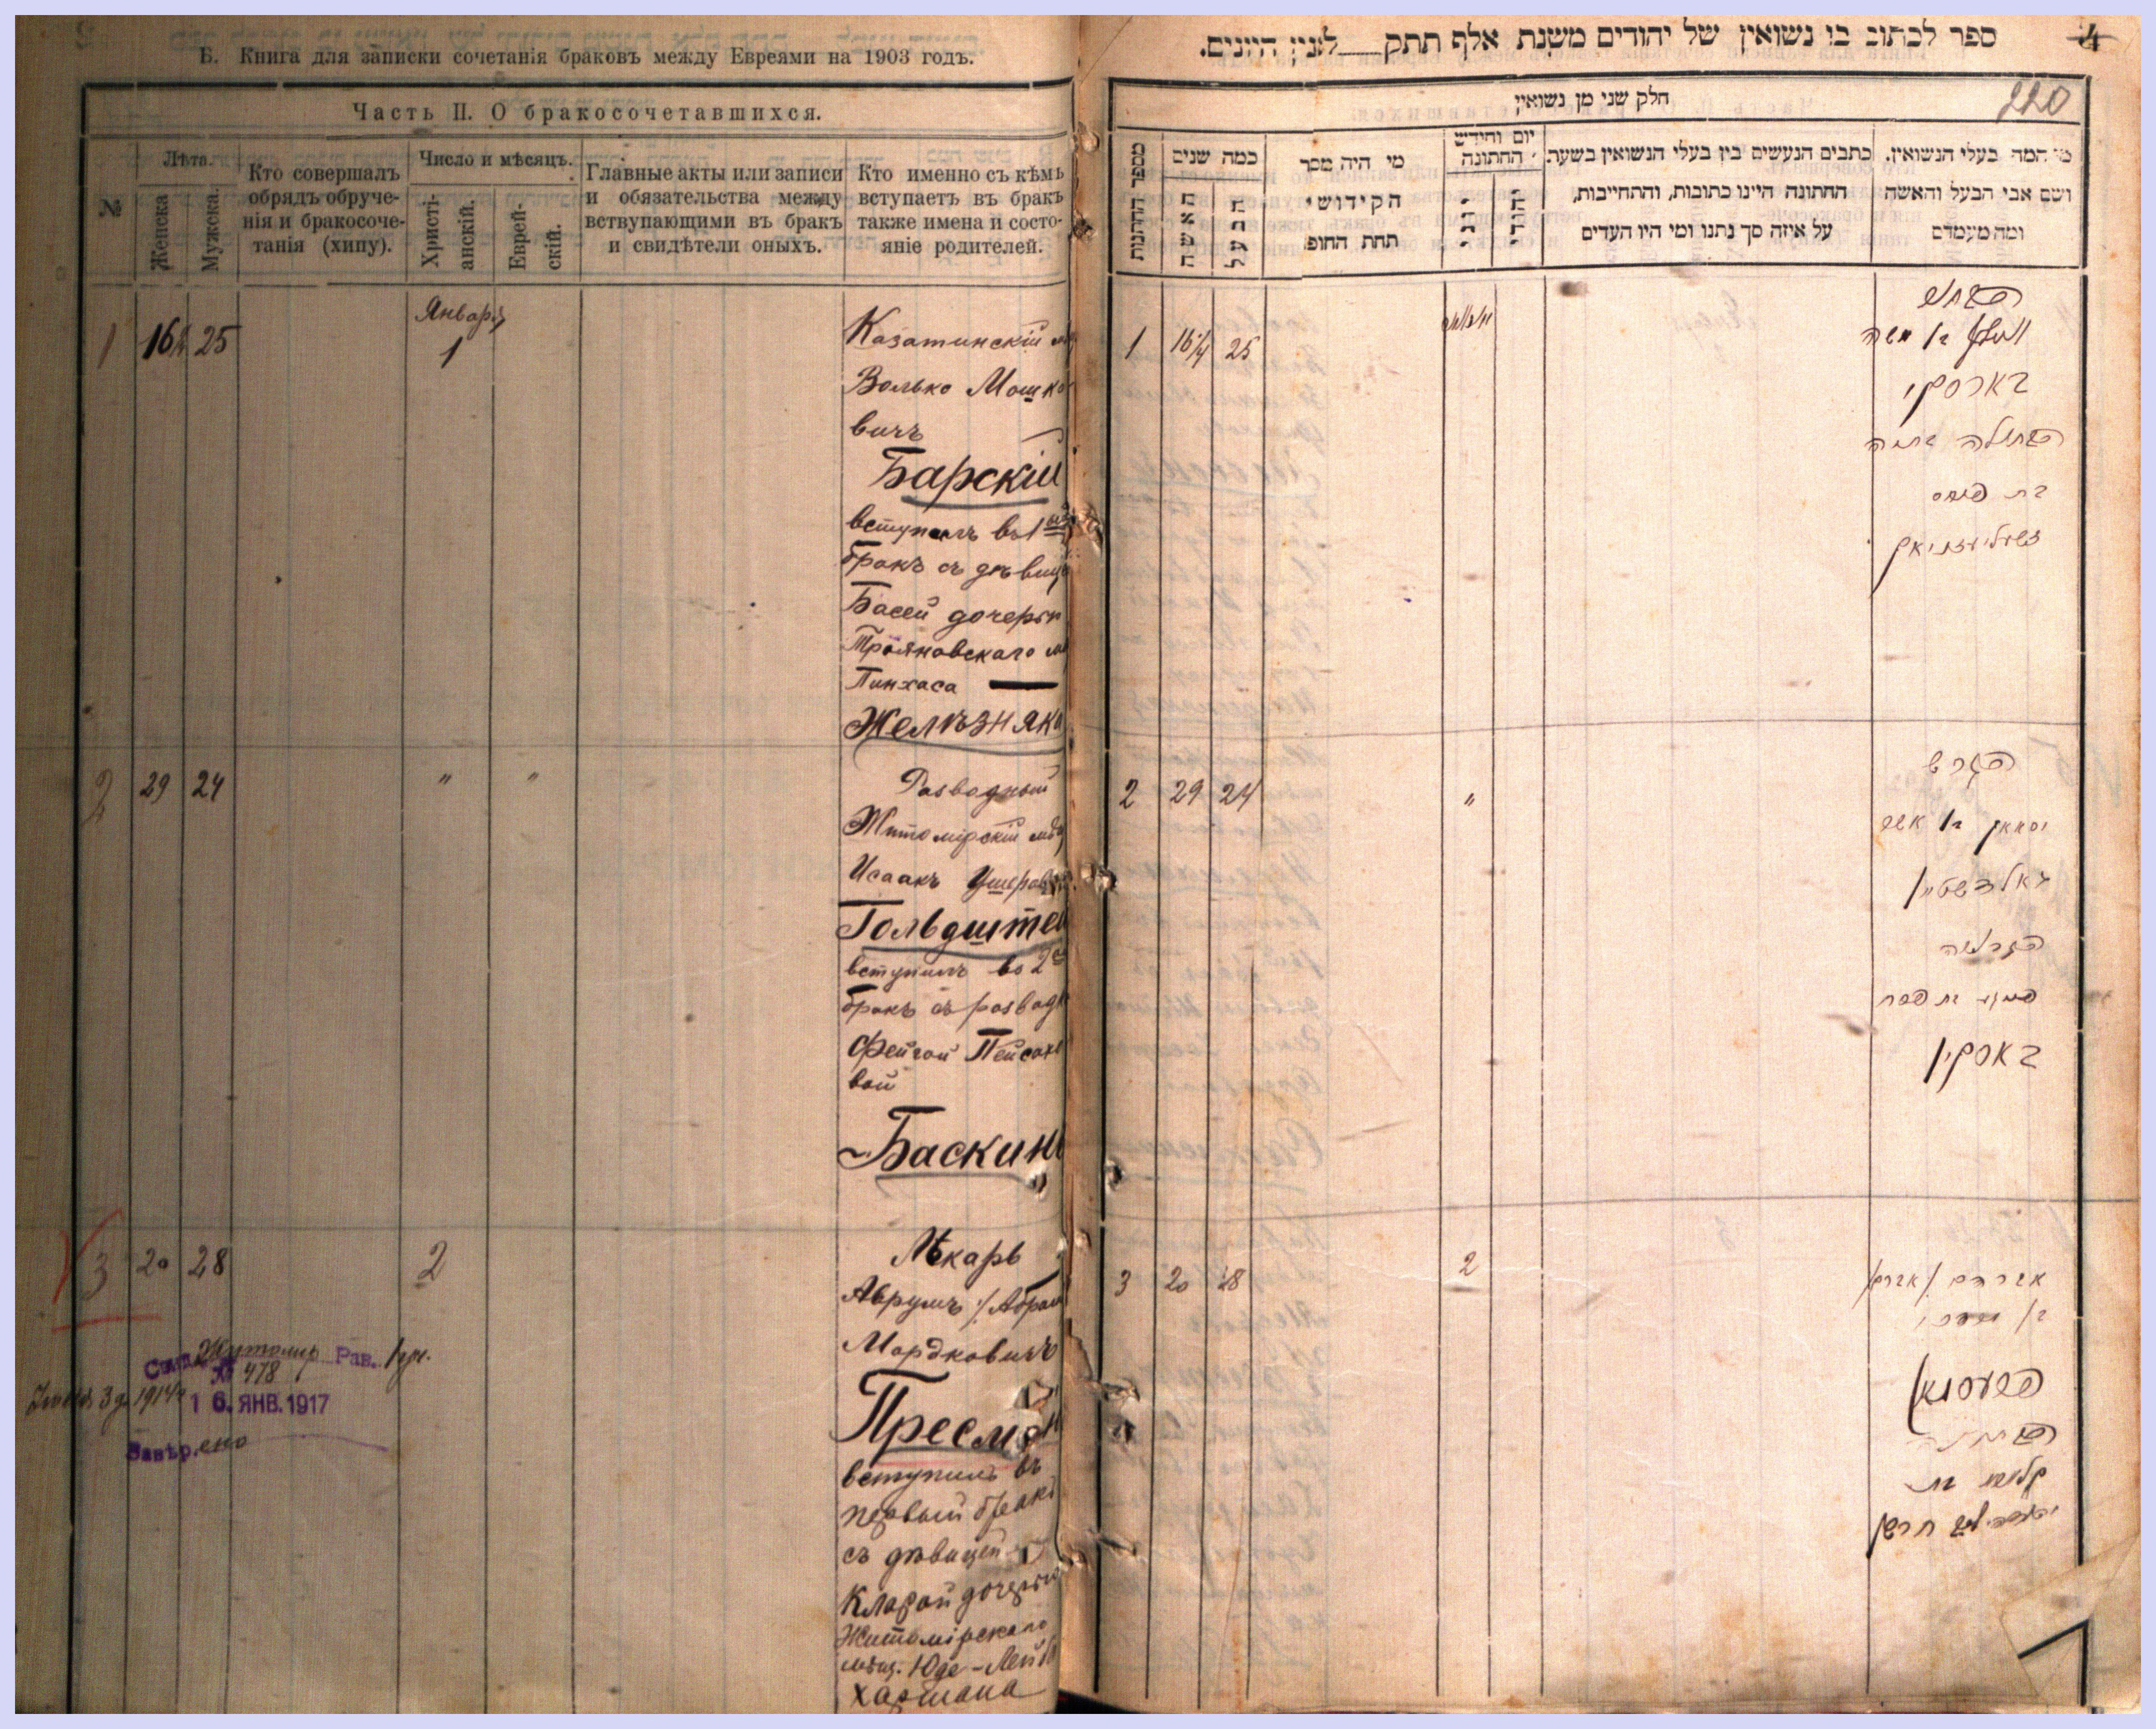 Б. Книга для записки сочетанія браковъ между Евреями на 1903 годъ.
Часть II. О бракосочетавшихся.
№
Лѣта.
Женска
Мужска.
Кто совершалъ
обрядъ обруче-
нія и бракосоче-
танія (хипу).
Число и мѣсяцъ.
Христі-
анскій.
Еврей-
скій.
Главные акты или записи
и обязательства между
вступающими въ бракъ
и свидѣтели оныхъ.
Кто именно съ кѣмъ
вступаетъ въ бракъ
также имена и состо-
яніе родителей.
1 16½ 25
Января
1
Казатинскій
Волько Мошко
вичъ
Барскій
вступилъ въ 1
бракъ съ дѣвице
Басей дочерью
Трояновскаго
Пинхаса
Желѣзняка
2 29 24 " "
Разводный
Житомірскій
Исаакъ Ушеров
Гольдштей
вступилъ во 2
бракъ съ развод
Фейгой Пейсахо
вой
Баскинъ
3 20 28 2
Лѣкарь
Аврумъ /Абрам
Мордковичъ
Пресман
вступилъ въ
первый бракъ
съ дѣвицей
Кларой дочерью
Житомірскаго
мѣщ. Юде-Лейб
Хармана
Житомир Рав.
№ 478
1914
16. ЯНВ. 1917
Завѣрено
ספר לכתוב בו נשואין של יהודים משנת אלף תתק למנין היונים.
4
220
חלק שני מן נשואין
מספר החתונות
כמה שנים
האשה
הבעל
מי היה מסדר
הקידושי
תחת החופ
יום וחודש
החתונה
יוני
יהודי
כתבים הנעשים בין בעלי הנשואין בשער.
החתונה היינו כתובות, והתחייבות,
על איזה סך נתנו ומי היו העדים
מי המה בעלי הנשואין.
ושם אבי הבעל והאשה
ומה מעמדם
1 16½ 25 יאנואר
הבחור
וואלף בן משה
בארסקי
הבתולה באסיה
בת פנחס
זשעליעזניאק
2 29 24 "
הגרוש
יסאאק בן אשר
גאלדשטיין
הגרושה
פייגא בת פסח
באסקין
3 20 28 2
אברהם /אברם/
בן מרדכי
פרעסמאן
הבתולה
קלארא בת
יהודה ליב חרמן